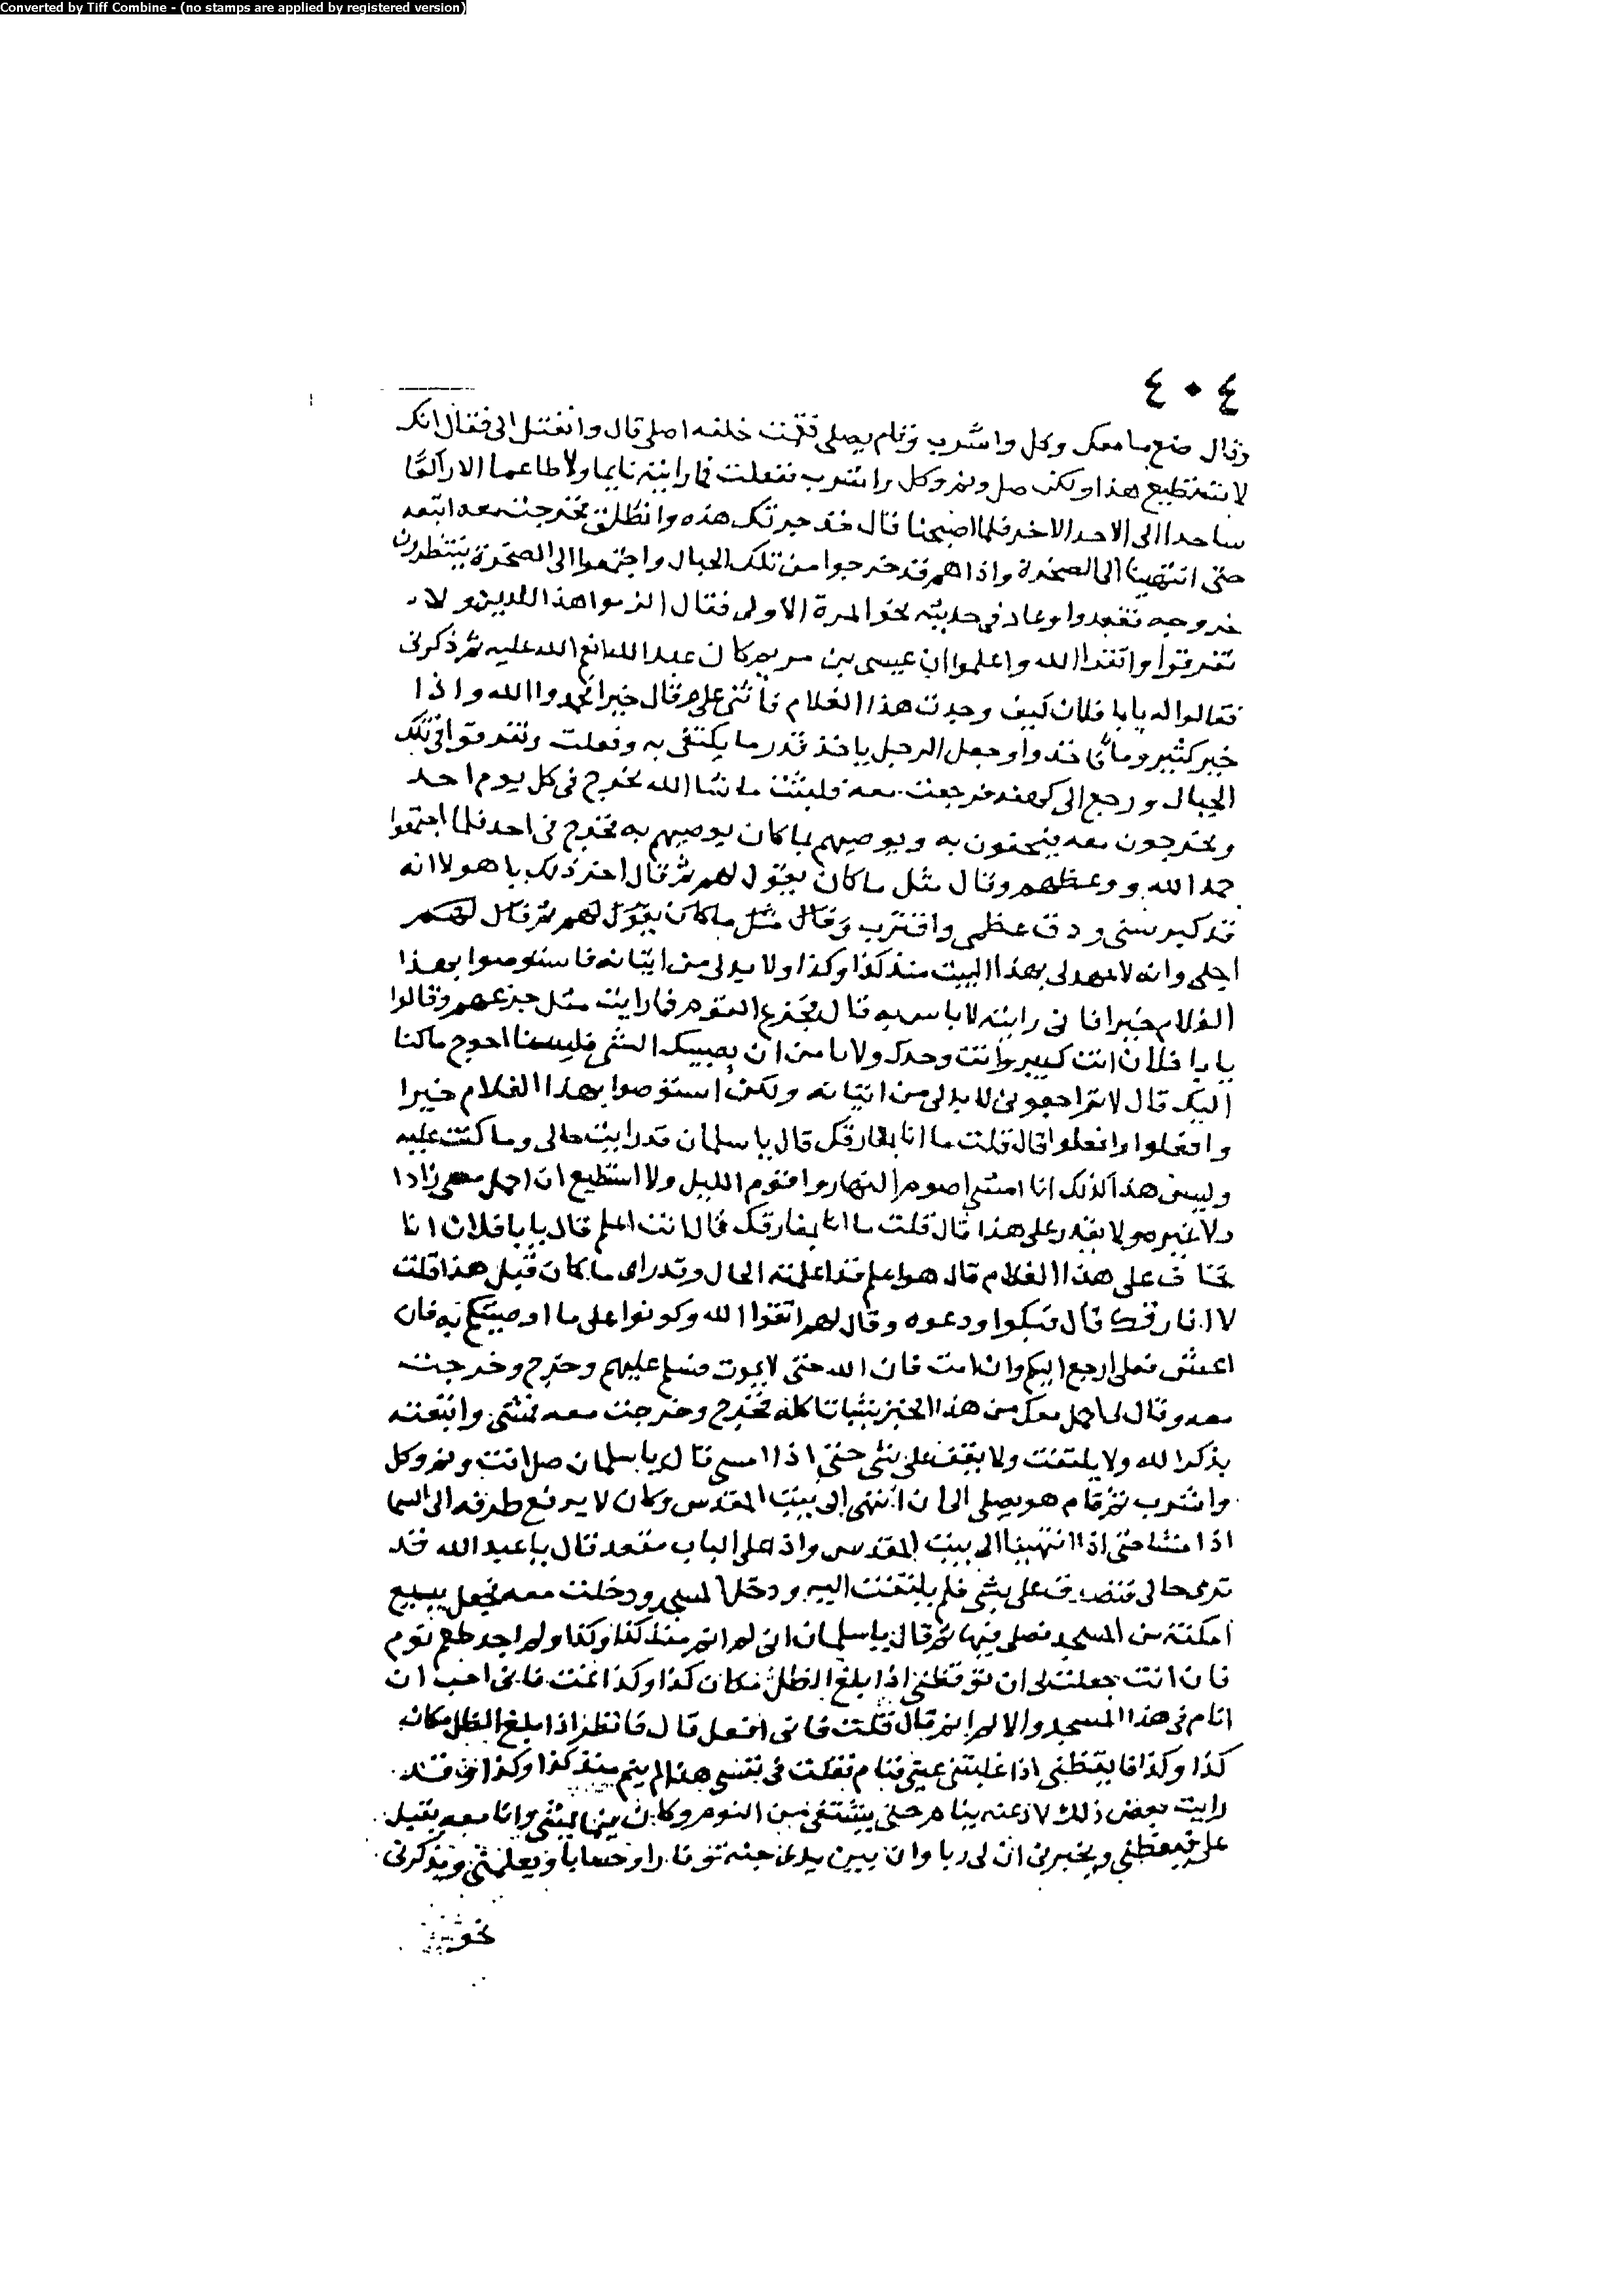 Converted by Tiff Combine - (no stamps are applied by registered version)
٤٠٤
وقال ضع ما معك وكل واشرب وقام يصلى فقمت خلفه اصلى قال وانفتل الى فقال انك
لا تستطيع هذا ولكن صل ونم وكل واشرب ففعلت فما رايته نايما ولا طاعما الا راكعا
ساجدا الى الاحد الاخر فلما اصبحنا قال خذ جرتك هذه وانطلق فخرجت معه اتبعه
حتى انتهينا الى الصخرة واذا هم قد خرجوا من تلك الجبال واجتمعوا الى الصخرة ينتظرون
خروجه فقعدوا وعاد فى حديثه نحو المرة الاولى فقال الزموا هذا الدين ولا
تفرقوا واتقوا الله واعلموا ان عيسى بن مريم كان عبدا لله انعم الله عليه ثم ذكرنى
فقالوا له يابا فلان كيف وجدت هذا الغلام فاثنى على وقال خيرا فحمدوا الله واذا
خبز كثير وما فاخذوا وجعل الرجل ياخذ قدر ما يكتفى به وفعلت وتفرقوا فى تلك
الجبال ورجع الى كهفه فرجعت معه فلبثت ما شا الله يخرج فى كل يوم احد
ويخرجون معه يحفون به ويوصيهم بما كان يوصيهم به فخرج فى احد فلما اجتمعوا
حمد الله ووعظهم وقال مثل ما كان يقول لهم ثم قال اخر ذلك يا هولا انه
قد كبر سنى ودق عظمى واقترب وقال مثل ما كان يقول لهم ثم قال لهم
اجلى وانه لا عهد لى بهذا البيت منذ كذا وكذا ولا بد لى من اتيانه فاستوصوا بهذا
الغلام خيرا فانى رايته لا باس به قال فجزع القوم فما رايت مثل جزعهم وقالوا
يابا فلان انت كبير وانت وحدك ولا نامن ان يصيبك الشى فلسنا احوج ما كنا
اليك قال لا تراجعونى لا بد لى من اتيانه ولكن استوصوا بهذا الغلام خيرا
وافعلوا وافعلوا قال قلت ما انا بمفارقك قال يا سلمان قد رايت حالى وما كنت عليه
وليس هذا كذلك انا امشى اصوم النهار واقوم الليل ولا استطيع ان احمل معى زادا
ولا غيره ولا تقدر على هذا قال قلت ما انا بمفارقك قال انت اعلم قال يابا فلان انا
نخاف على هذا الغلام قال هو اعلم قد اعلمته الحال وقد راى ما كان قبل هذا قلت
لا افارقك قال فبكوا ودعوه وقال لهم اتقوا الله وكونوا على ما اوصيتكم به فان
اعش فعلى ارجع اليكم وان امت فان الله حى لا يموت فسلم عليهم وخرج وخرجت
معه وقال لى احمل معك من هذا الخبز شيا تاكله فخرج وخرجت معه يمشى واتبعته
يذكر الله ولا يلتفت ولا يقف على شى حتى اذا امسى قال يا سلمان صل انت ونم وكل
واشرب ثم قام هو يصلى الى ان انتهى الى بيت المقدس وكان لا يرفع طرفه الى السما
اذا مشا حتى اذا انتهينا الى بيت المقدس واذا على الباب مقعد قال يا عبد الله قد
ترى حالى فتصدق على بشى فلم يلتفت اليه ودخل المسجد ودخلت معه فجعل يتبع
امكنة من المسجد فصلى فيها ثم قال يا سلمان انى لم انم منذ كذا وكذا ولم اجد طعم نوم
فان انت جعلت لى ان توقظنى اذا بلغ الظل مكان كذا وكذا نمت فانى احب ان
انام فى هذا المسجد والا لم انم قال قلت فانى افعل قال فانظر اذا بلغ الظل مكان
كذا وكذا فايقظنى اذا غلبتنى عينى فنام فقلت فى نفسى هذا لم ينم منذ كذا وكذا وقد
رايت بعض ذلك لادعنه ينام حتى يشتفى من النوم وكان فيما يمشى وانا معه يقبل
على فيعظنى ويخبرنى ان لى ربا وان بين يدى جنة ونارا وحسابا ويعلمنى ويذكرنى
نحو